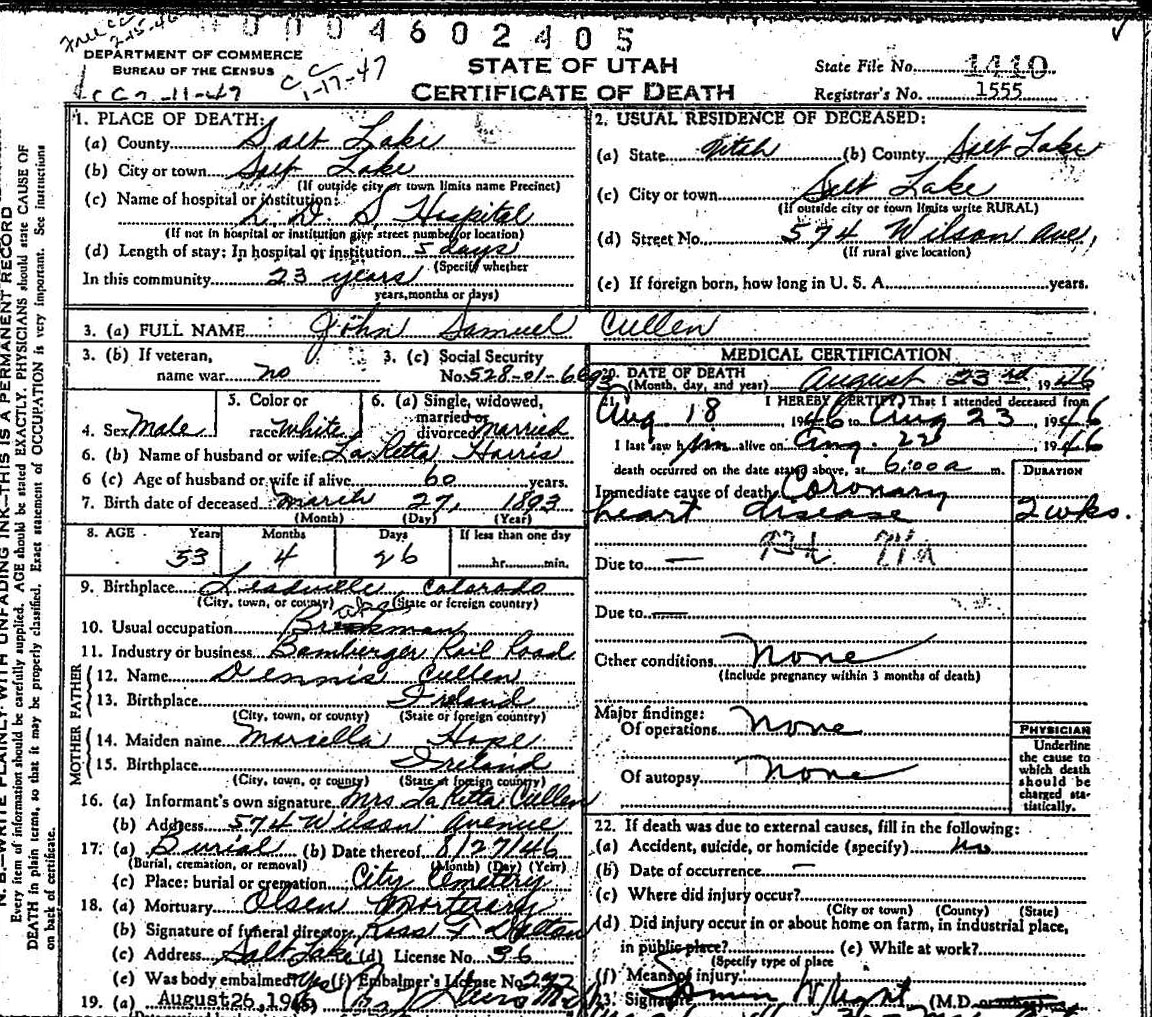 Free C C
2-15-46
0 0 0 4 6 0 2 4 0 5
DEPARTMENT OF COMMERCE
BUREAU OF THE CENSUS
C C
1-17-47
C C 7-11-47
STATE OF UTAH
CERTIFICATE OF DEATH
State File No. 1410
Registrar's No. 1555
1. PLACE OF DEATH:
(a) County Salt Lake
(b) City or town Salt Lake
(If outside city or town limits name Precinct)
(c) Name of hospital or institution:
L. D. S Hospital
(If not in hospital or institution give street number or location)
(d) Length of stay: In hospital or institution 5 days
(Specify whether
In this community 23 years
years, months or days)
2. USUAL RESIDENCE OF DECEASED:
(a) State Utah (b) County Salt Lake
(c) City or town Salt Lake
(If outside city or town limits write RURAL)
(d) Street No. 574 Wilson Ave,
(If rural give location)
(e) If foreign born, how long in U. S. A. years.
3. (a) FULL NAME John Samuel Cullen
3. (b) If veteran,
name war no
3. (c) Social Security
No. 528-01-6693
4. Sex Male
5. Color or
race white
6. (a) Single, widowed,
married or
divorced married
6. (b) Name of husband or wife: LaRetta Harris
6 (c) Age of husband or wife if alive 60 years.
7. Birth date of deceased March 27, 1893
(Month) (Day) (Year)
8. AGE Years Months Days If less than one day
53 4 26 hr. min.
9. Birthplace Leadville Colorado
(City, town, or county) (State or foreign country)
10. Usual occupation Brakeman
11. Industry or business Bamberger Rail Road
FATHER
12. Name Dennis Cullen
13. Birthplace Ireland
(City, town, or county) (State or foreign country)
MOTHER
14. Maiden name Marsella Hope
15. Birthplace Ireland
(City, town, or county) (State or foreign country)
16. (a) Informant's own signature Mrs. LaRetta Cullen
(b) Address 574 Wilson Avenue
17. (a) Burial (b) Date thereof 8/27/46
(Burial, cremation, or removal) (Month) (Day) (Year)
(c) Place: burial or cremation City Cemetery
18. (a) Mortuary Olsen Mortuary
(b) Signature of funeral director Ross F Dalton
(c) Address Salt Lake (d) License No. 36
(e) Was body embalmed? Yes (f) Embalmer's License No. 
19. (a) August 26, 1946 (b)
MEDICAL CERTIFICATION
20. DATE OF DEATH
(Month, day, and year) August 23rd 1946
21. I HEREBY CERTIFY, That I attended deceased from
Aug. 18 1946 to Aug 23, 1946
I last saw him alive on Aug. 22 1946
death occurred on the date stated above, at 6:00 a m.
DURATION
Immediate cause of death Coronary
heart disease 2 wks.
Due to —
Due to —
Other conditions None
(Include pregnancy within 3 months of death)
Major findings:
Of operations None
Of autopsy None
PHYSICIAN
Underline
the cause to
which death
should be
charged sta-
tistically.
22. If death was due to external causes, fill in the following:
(a) Accident, suicide, or homicide (specify) no
(b) Date of occurrence —
(c) Where did injury occur?
(City or town) (County) (State)
(d) Did injury occur in or about home on farm, in industrial place,
in public place? (e) While at work?
(Specify type of place
(f) Means of injury.
23. Signature (M.D. or
N. B.—WRITE PLAINLY WITH UNFADING INK—THIS IS A PERMANENT RECORD
Every item of information should be carefully supplied. AGE should be stated EXACTLY. PHYSICIANS should state CAUSE OF
DEATH in plain terms, so that it may be properly classified. Exact statement of OCCUPATION is very important. See instructions
on back of certificate.